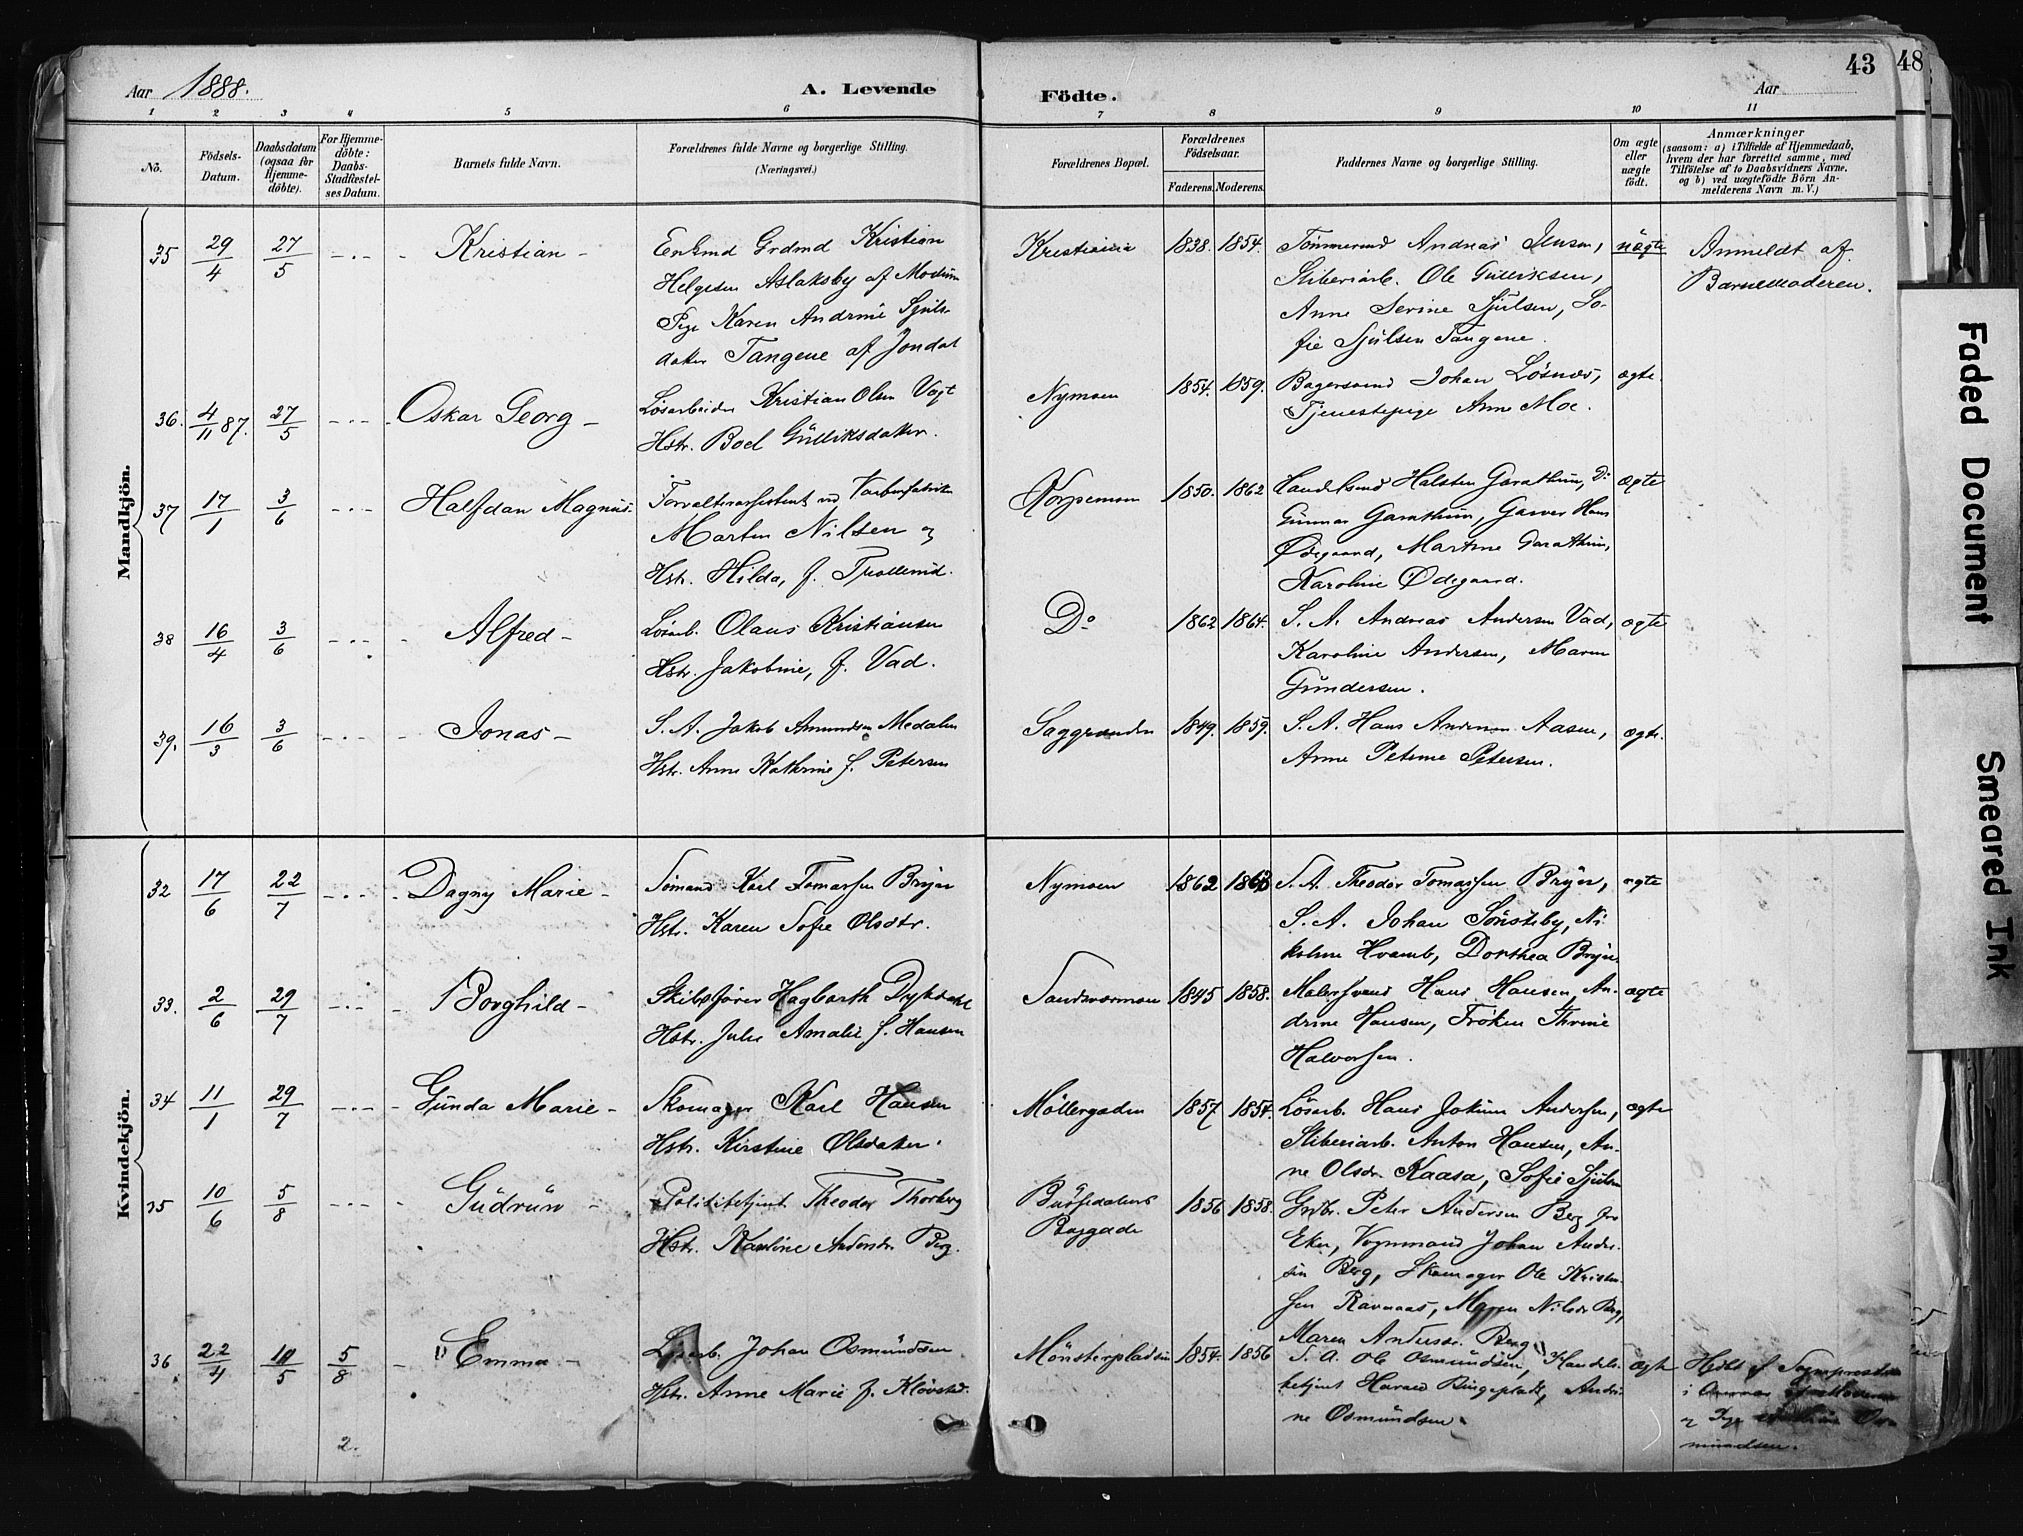 Aar 1888. A. Levende Födte. Aar 43 48
1 2 3 4 5 6 7 8 9 10 11
No. Födsels-Datum. Daabsdatum (ogsaa for Hjemmedöbte). For Hjemmedöbte: Daabs-Stadfæstelses Datum. Barnets fulde Navn. Forældrenes fulde Navne og borgerlige Stilling. (Næringsvei.) Forældrenes Bopæl. Forældrenes Födselsaar. Faderens. Moderens. Faddernes Navne og borgerlige Stilling. Om ægte eller uægte födt. Anmærkninger (saasom: a) i Tilfælde af Hjemmedaab, hvem der har forrettet samme, med Tilföielse af to Daabsvidners Navne, og b) ved uægtefödte Börn Anmelderens Navn m. V.)
Mandkjön.
35 29/4 27/5 -.- Kristian - Enkmd Grdmd Kristian
Helgesen Aslaksby af Modum
Pige Karen Andrine Sjuls-
dater Tangene af Jondal
Kristiania 1838. 1854. Tømmermd Andreas Jensen,
Sliberiarb. Ole Gulliksen,
Anne Serine Sjulsen, So-
fie Sjulsen Tangene.
uægte Anmeldt af
Barnemoderen.
36. 4/11 87. 27/5 -.- Oskar Georg - Løsarbeider Kristian Olsen Vogt
Hstr. Boel Gulliksdater.
Nymoen 1854. 1859. Bagersvend Johan Løsnæs,
Tjenestepige Anne Moe.
ægte.
37 17/1 3/6 -.- Halfdan Magnus - Forvalterassistent ved
Marten Nilsen og
Hstr. Hilda, f.
1850. 1862 Handelsmd Halsten Garathun, Do
Gunnar Garathun, Garver Hans
Ødegaard, Martine Garathun,
Karoline Ødegaard.
ægte
38 16/4 3/6 -.- Alfred - Løsarb. Olaus Kristiansen
Hstr. Jakobine, f. Vad.
Do 1862 1864. S. A. Andreas Andersen Vad,
Karoline Andersen, Maren
Gundersen.
ægte
39. 16/3 3/6 -.- Jonas - S. A. Jakob Amundsen Medalen
Hstr. Anne Kathrine f. Petersen
Saggrenden 1849. 1859. S. A. Hans Andersen Aasen,
Anne Petrine Petersen.
ægte.
Kvindekjön.
32 17/6 22/7 -.- Dagny Marie - Sømand Karl Tomassen Bryn
Hstr. Karen Sofie Olsdtr.
Nymoen 1862 S. A. Theodor Tomassen Bryn,
S. A. Johan Sønsteby, Ni-
koline Hvamb, Dorthea Bryn
ægte
33. 2/6 29/7 -.- Borghild - Skibsfører Hagbarth
Hstr. Julie Amalie f. Hansen
Sandsværmoen 1845 1858. Malersvend Hans Hansen, An-
drine Hansen, Frøken Thrine
Halvorsen.
ægte
34 11/1 29/7 -.- Gunda Marie - Skomager Karl Hansen
Hstr. Kirstine Olsdater.
Møllergaden 1857 1854. Løsarb. Hans Jokum Andersen,
Sliberiarb. Anton Hansen, An-
ne Olsdr Kaasa, Sofie Sjulsen
ægte
35 10/6 5/8 -.- Gudrun - Politibetjent Theodor Thorberg
Hstr. Karoline Andersdr Berg.
Baggade 1856 1858. Grdbr. Peter Andersen Berg fra
Eker, Vognmand Johan Ander-
sen Berg, Skomager Ole Kristen-
sen Ravnaas, Maren Nilsdr Berg,
Maren Andersdr. Berg
36 22/4 10/5 5/8 - Emma - Løsarb. Johan Osmundsen
Hstr. Anne Marie f. Kløvstad.
Mønsterpladsen 1854. 1856 S. A. Ole Osmundsen, Handels-
betjent Harald Ringeplads, Andri-
ne Osmundsen.
ægte Hdbt af
i
og Pige Os-
mundsen.
2.
Faded Document
Smeared Ink